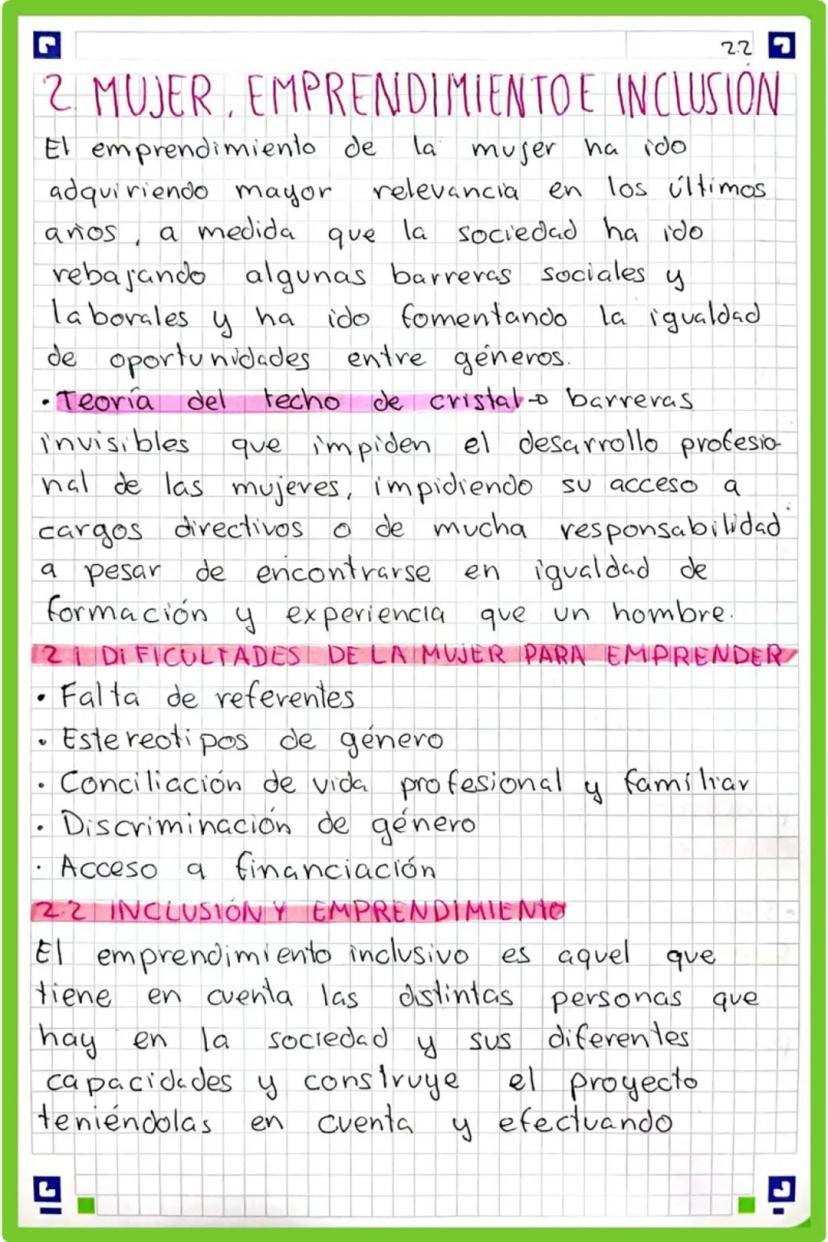 22
2. MUJER, EMPRENDIMIENTO E INCLUSIÓN
El emprendimiento de la mujer ha ido
adquiriendo mayor relevancia en los últimos
años, a medida que la sociedad ha ido
rebajando algunas barreras sociales y
laborales y ha ido fomentando la igualdad
de oportunidades entre géneros.
• Teoría del techo de cristal → barreras
invisibles que impiden el desarrollo profesio-
nal de las mujeres, impidiendo su acceso a
cargos directivos o de mucha responsabilidad
a pesar de encontrarse en igualdad de
formación y experiencia que un hombre.
2.1 DIFICULTADES DE LA MUJER PARA EMPRENDER
• Falta de referentes
• Estereotipos de género
• Conciliación de vida profesional y familiar
• Discriminación de género
• Acceso a financiación
2.2 INCLUSIÓN Y EMPRENDIMIENTO
El emprendimiento inclusivo es aquel que
tiene en cuenta las distintas personas que
hay en la sociedad y sus diferentes
capacidades y construye el proyecto
teniéndolas en cuenta y efectuando